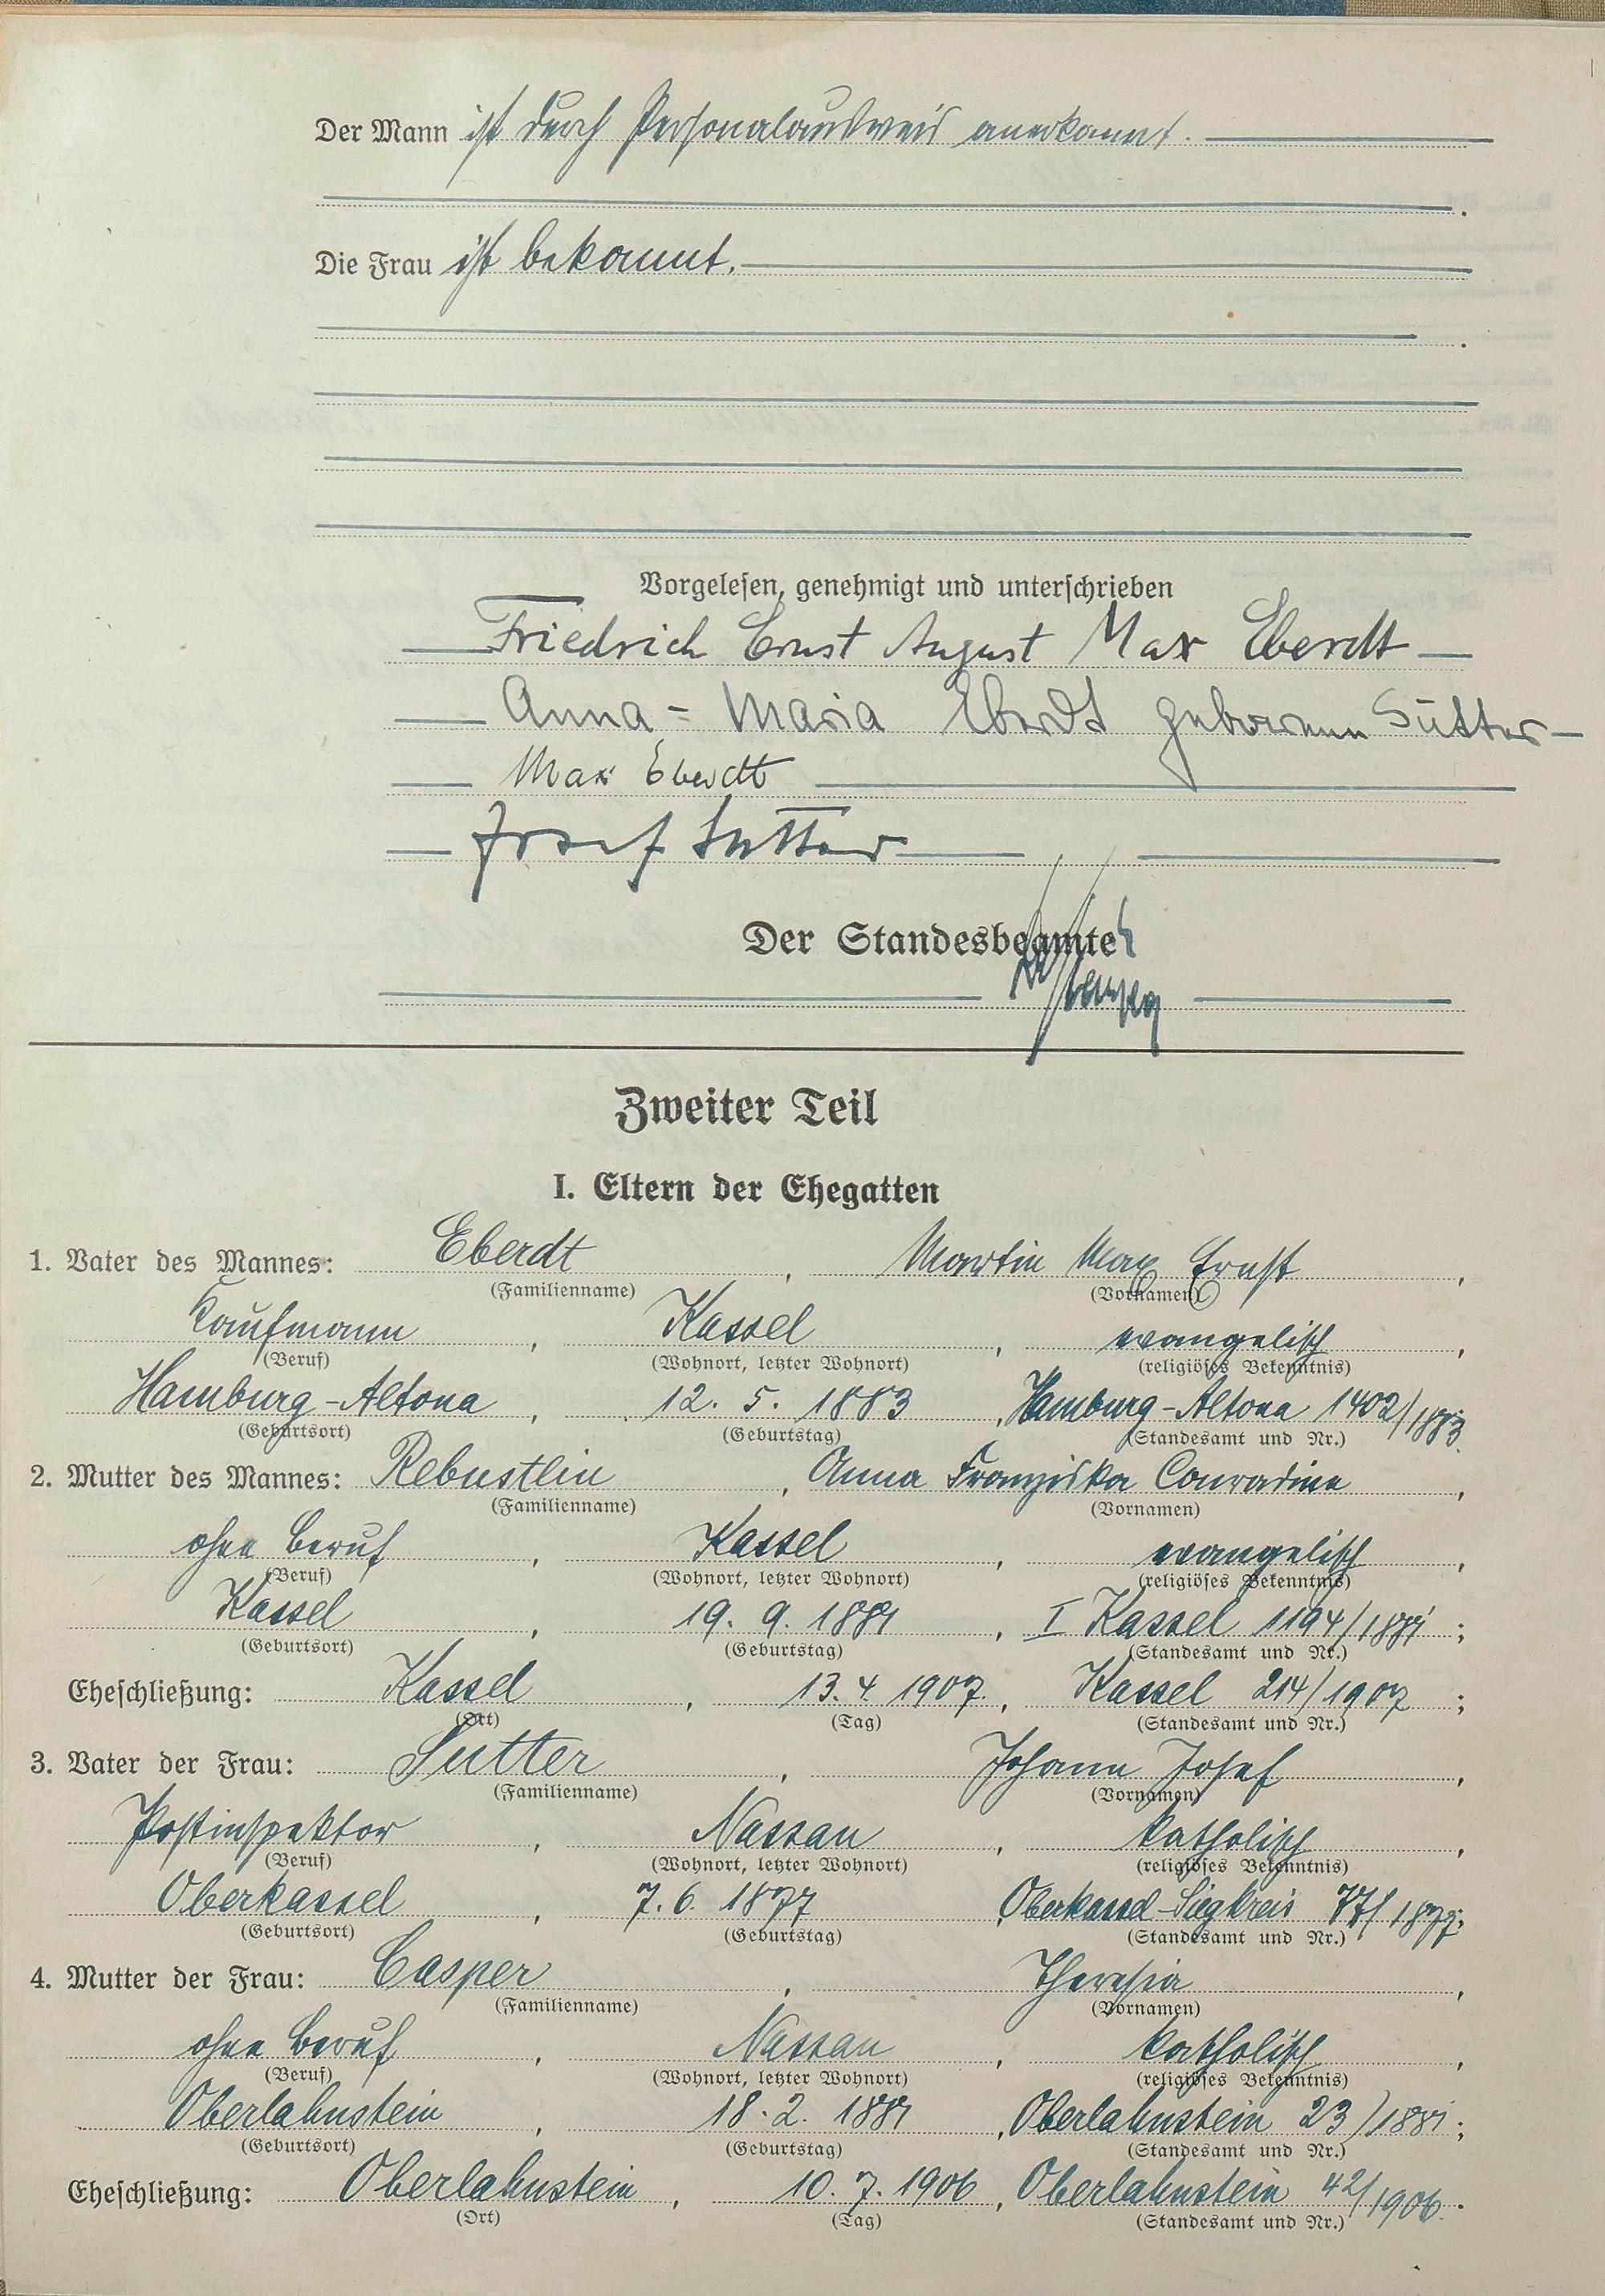 Der Mann ist durch Personalausweis anerkannt.
Die Frau ist bekannt.
Vorgelesen, genehmigt und unterschrieben
Friedrich Ernst August Max Eberdt
Anna-Maria Eberdt geborene Sutter
Max Eberdt
Josef Sutter
Der Standesbeamte
Zweiter Teil
I. Eltern der Ehegatten
1. Vater des Mannes: Eberdt, Martin Max Ernst,
(Familienname) (Vornamen)
Kaufmann, Kassel, evangelisch,
(Beruf) (Wohnort, letzter Wohnort) (religiöses Bekenntnis)
Hamburg-Altona, 12. 5. 1883, Hamburg-Altona 1402/1883
(Geburtsort) (Geburtstag) (Standesamt und Nr.)
2. Mutter des Mannes: Rebustlin, Anna Franziska Conradine,
(Familienname) (Vornamen)
ohne Beruf, Kassel, evangelisch,
(Beruf) (Wohnort, letzter Wohnort) (religiöses Bekenntnis)
Kassel, 19. 9. 1881, I Kassel 1194/1881;
(Geburtsort) (Geburtstag) (Standesamt und Nr.)
Eheschließung: Kassel, 13. 4. 1907., Kassel 214/1907;
(Ort) (Tag) (Standesamt und Nr.)
3. Vater der Frau: Sutter, Johann Josef,
(Familienname) (Vornamen)
Postinspektor, Nassau, katholisch,
(Beruf) (Wohnort, letzter Wohnort) (religiöses Bekenntnis)
Oberkassel, 7. 6. 1877, Oberkassel-Siegkreis 77/1877;
(Geburtsort) (Geburtstag) (Standesamt und Nr.)
4. Mutter der Frau: Casper, Theresia,
(Familienname) (Vornamen)
ohne Beruf, Nassau, katholisch,
(Beruf) (Wohnort, letzter Wohnort) (religiöses Bekenntnis)
Oberlahnstein, 18. 2. 1881, Oberlahnstein 23/1881;
(Geburtsort) (Geburtstag) (Standesamt und Nr.)
Eheschließung: Oberlahnstein, 10. 7. 1906, Oberlahnstein 42/1906.
(Ort) (Tag) (Standesamt und Nr.)